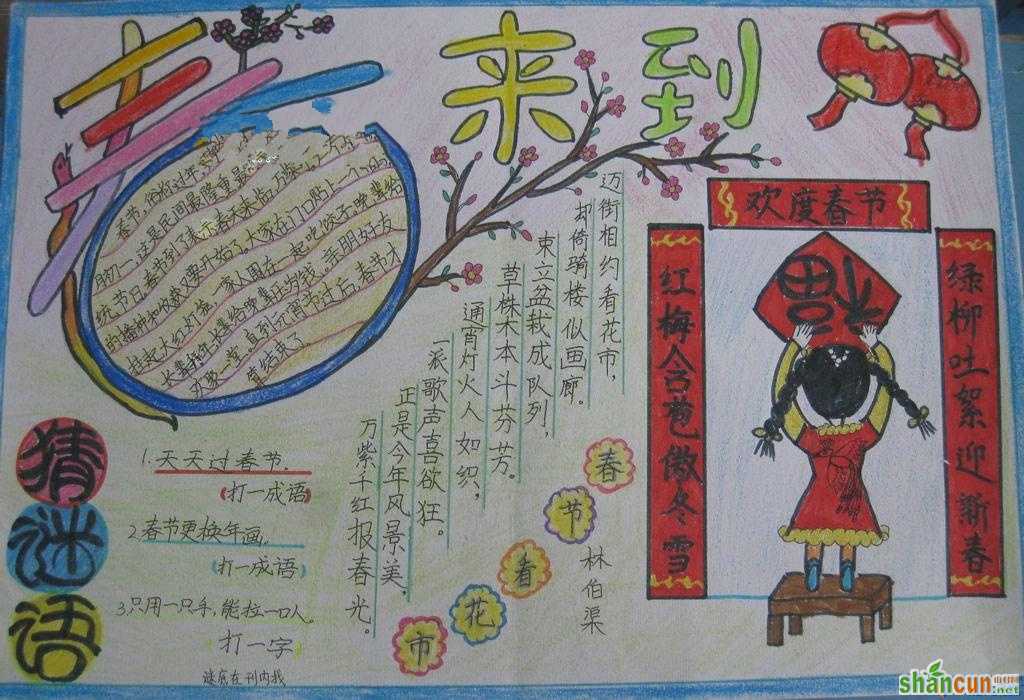 春来到
春节,俗称过年,
初一,这是民间最隆重最
统节日。春节到了表示春天来临,万象
的播种和收获又要开始了。大家在门口贴上一个
挂起大红灯笼,一家人围在一起吃饺子。晚辈给
长辈拜年,长辈给晚辈压岁钱。亲朋好友
一直到元宵节过后,春节才
算结束了
春节看花市
林伯渠
迈街相约看花市,
却倚骑楼似画廊。
束立盆栽成队列,
草株木本斗芬芳。
通宵灯火人如织,
一派歌声喜欲狂。
正是今年风景美,
万紫千红报春光。
欢度春节
红梅含苞傲冬雪
绿柳吐絮迎新春
福
猜谜语
1.天天过春节.
(打一成语)
2.春节更换年画。
(打一成语)
3.只用一只手,能拉一口人。
打一字
谜底在刊内找
shancun